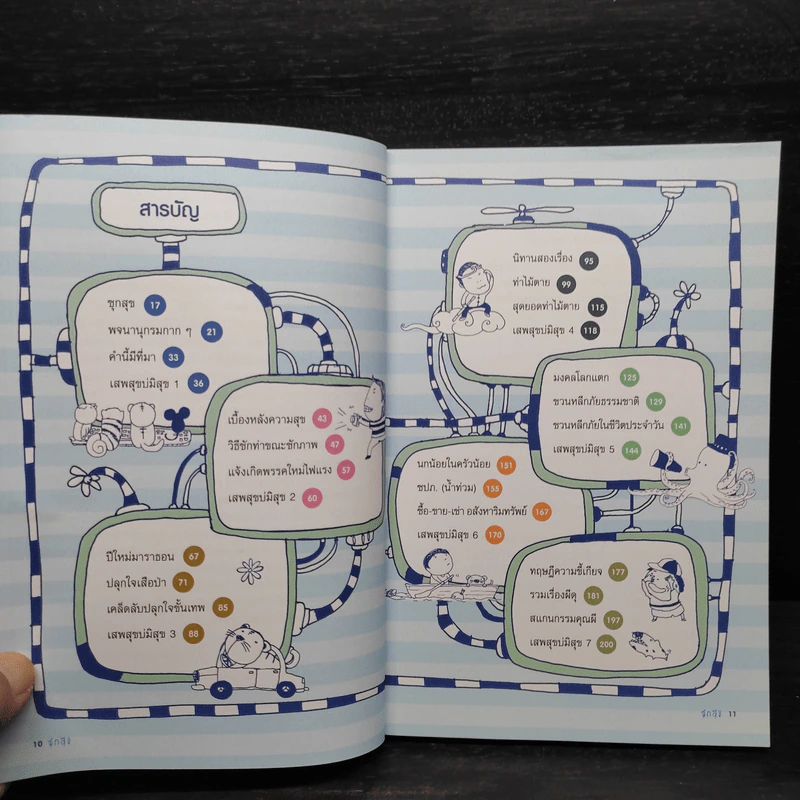 สารบัญ
ซุกสุข 17
พจนานุกรมกาก ๆ 21
คำนี้มีที่มา 33
เสพสุขบ่มิสุข 1 36
เบื้องหลังความสุข 43
วิธีชักท่าขณะชักภาพ 47
แจ้งเกิดพรรคใหม่ไฟแรง 57
เสพสุขบ่มิสุข 2 60
ปีใหม่มาราธอน 67
ปลุกใจเสือป่า 71
เคล็ดลับปลุกใจขั้นเทพ 85
เสพสุขบ่มิสุข 3 88
10 ซุกสุข
นิทานสองเรื่อง 95
ท่าไม้ตาย 99
สุดยอดท่าไม้ตาย 115
เสพสุขบ่มิสุข 4 118
มงคลโลกแตก 125
ชวนหลีกภัยธรรมชาติ 129
ชวนหลีกภัยในชีวิตประจำวัน 141
เสพสุขบ่มิสุข 5 144
นกน้อยในครัวน้อย 151
ชปภ. (น้ำท่วม) 155
ซื้อ-ขาย-เช่า อสังหาริมทรัพย์ 167
เสพสุขบ่มิสุข 6 170
ทฤษฎีความขี้เกียจ 177
รวมเรื่องผีดุ 181
สแกนกรรมคุณผี 197
เสพสุขบ่มิสุข 7 200
ซุกสุข 11